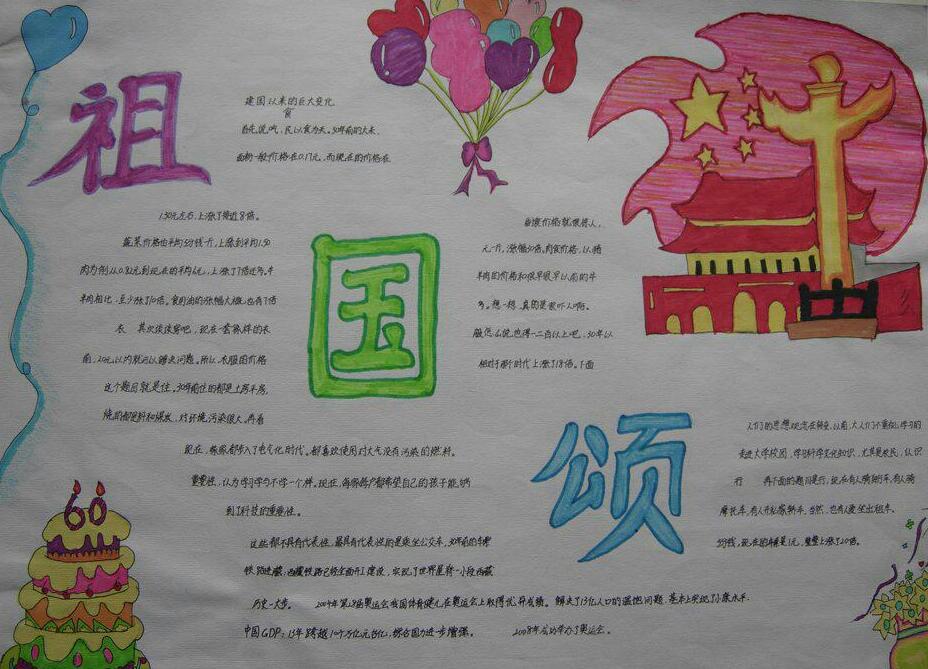 祖
国
颂
建国以来的巨大变化
食
首先说吃，民以食为天。30年前的大米、
面粉一般价格在0.17元，而现在的价格在
1.50元左右，上涨了接近8倍。
蔬菜价格由平均5分钱一斤，上涨到平均1.50
肉为例从0.82元到现在的平均6元，上涨了7倍还多。牛
羊肉相比，至少涨了10倍。食用油的涨幅大概也有7倍
衣 其次谈谈穿吧，现在一套像样的衣
前，20元以内就可以解决问题。所以，衣服的价格
这个题目就是住。30年前住的都是土房平房，
烧的都是柴和煤炭，对环境污染很大。再看
当康价格就很惊人，
元一斤，涨幅30倍。肉食价格，以猪
羊肉的价格和很早很早以前的牛
多。想一想，真的是要吓人的啊。
服怎么说也得一二百以上吧，30年以
相对于那个时代上涨了18倍。下面
现在，每家都步入了电气化时代。都喜欢使用对大气没有污染的燃料。
重要性，认为学习学与不学一个样。现在，每家每户都希望自己的孩子能够
到了科技的重要性。
人们的思想观念在转变，以前，大人们不重视学习的
走进大学校园，学习科学文化知识，尤其是农民，认识
行 再下面的题目是行，现在有人骑自行车，有人骑
摩托车，有人开私家轿车，当然，也有人要坐出租车。
5分钱，现在的价格是1元，整整上涨了20倍。
这些都不具有代表性，最具有代表性的是乘坐公交车，30年前的车费
铁路进藏：西藏铁路已经全面开工建设，实现了世界屋脊一小段西藏
历史一大步。 2004年第28届奥运会我国体育健儿在奥运会上取得优异成绩。 解决了13亿人口的温饱问题，基本上实现了小康水平。
中国GDP：13年跨越10个万亿元台亿，综合国力进一步增强。 2008年成功举办了奥运会。
60